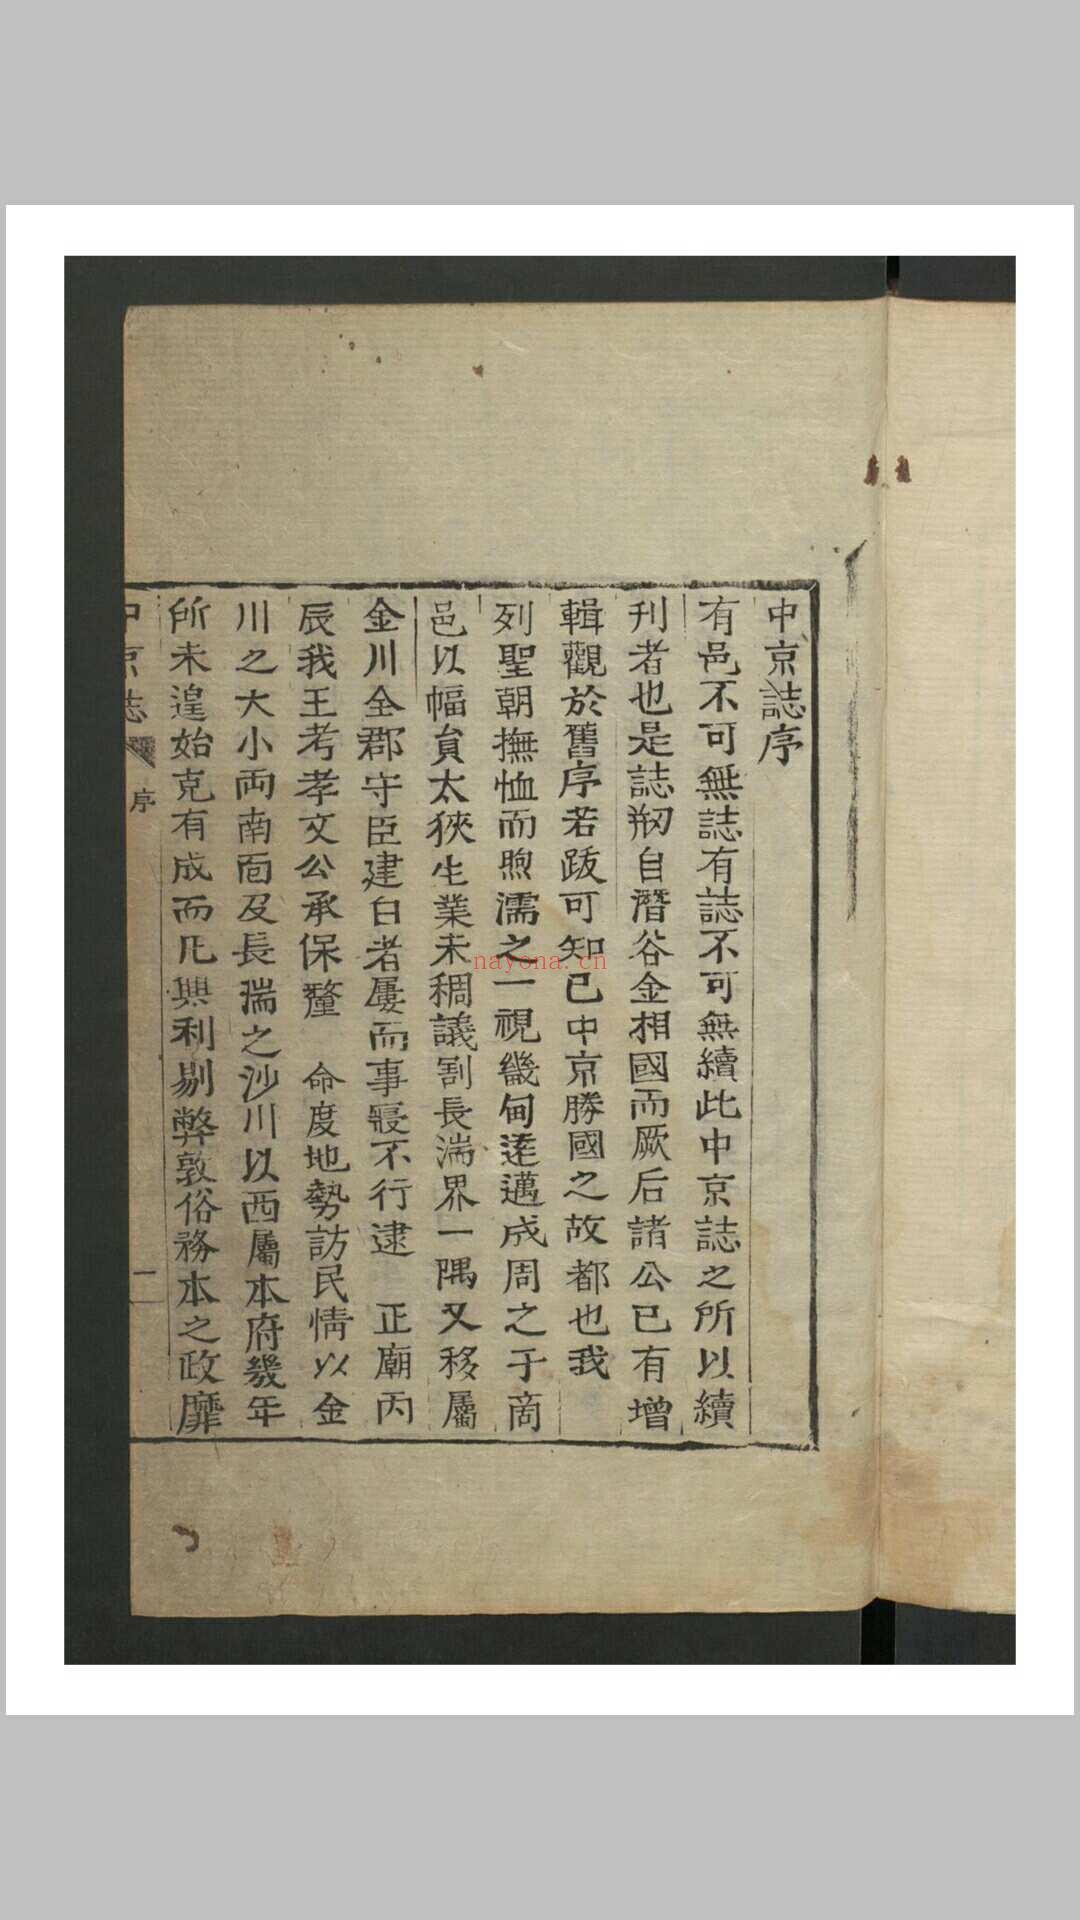 中京誌序
有邑不可無誌有誌不可無續此中京誌之所以續
刊者也是誌刱自潛谷金相國而厥后諸公已有增
輯觀於舊序若跋可知已中京勝國之故都也我
列聖朝撫恤而煦濡之一視畿甸逹邁成周之于商
邑以幅負太狹生業未稠議割長湍界一隅又移屬
金川全郡守臣建白者屢而事寢不行逮 正廟丙
辰我王考孝文公承保釐 命度地勢訪民情以金
川之大小両南面及長湍之沙川以西屬本府幾年
所未遑始克有成而凡興利剔弊敦俗務本之政靡
中京誌 序 一
nayona.cn